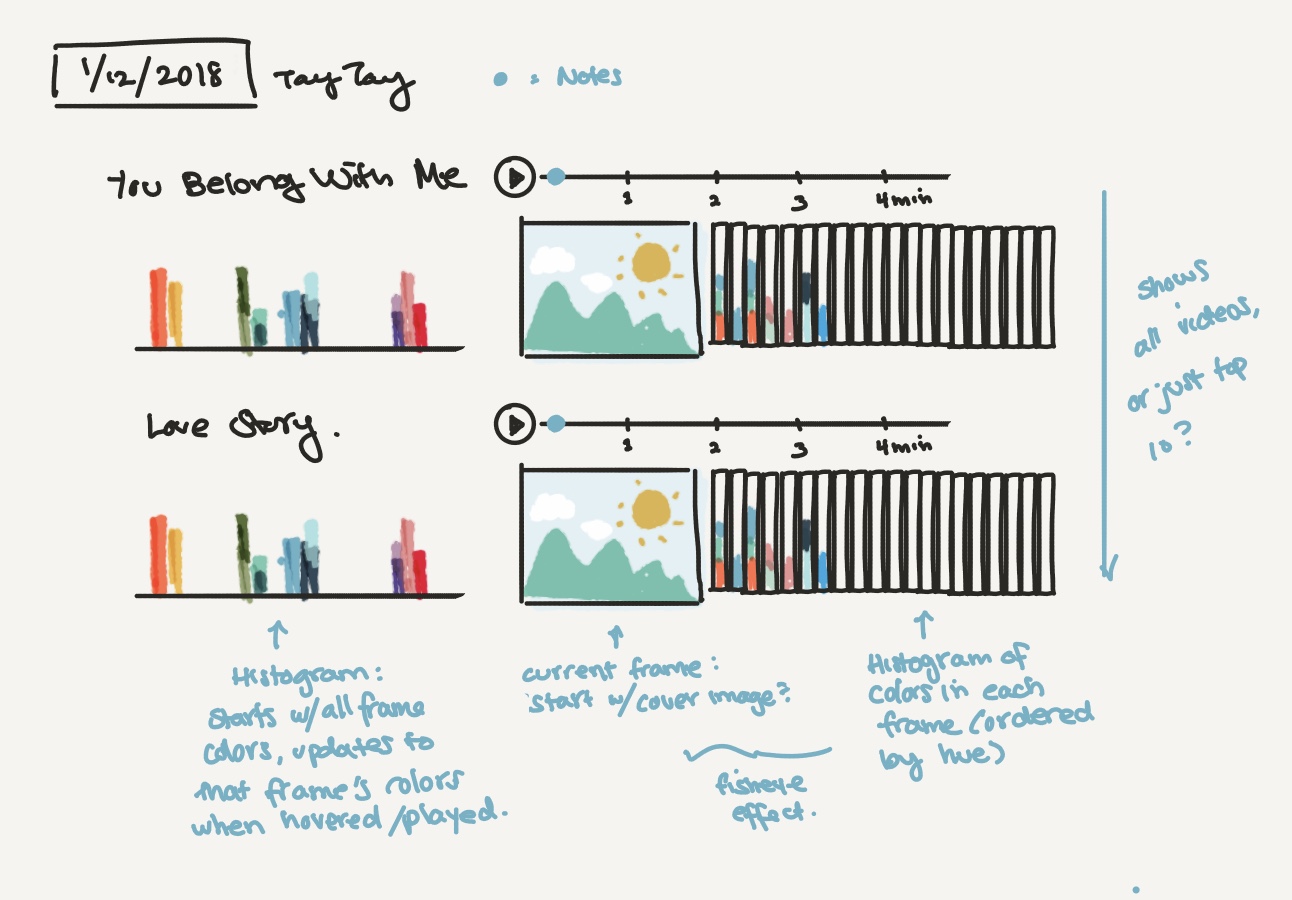 1/12/2018 TayTay : Notes
You Belong With Me
1 2 3 4min
Love Story.
1 2 3 4min
shows
all videos,
or just top
10?
Histogram:
starts w/ all frame
colors, updates to
that frame's colors
when hovered/played.
current frame:
start w/ cover image?
fisheye
effect.
Histogram of
colors in each
frame (ordered
by hue)